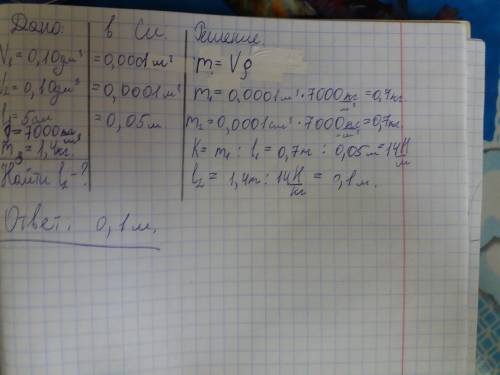 Дано: в Си. Решение.
V₁ = 0,10 дм³ = 0,0001 м³ m = Vρ
V₂ = 0,10 дм³ = 0,0001 м³ m₁ = 0,0001 м³ · 7000 кг/м³ = 0,7 кг.
l₁ = 5 см = 0,05 м. m₂ = 0,0001 см³ · 7000 кг/м³ = 0,7 кг.
ρ = 7000 кг/м³
m₃ = 1,4 кг. K = m₁ : l₁ = 0,7 м : 0,05 м = 14 Н/м
Найти l₂ - ? l₂ = 1,4 м : 14 Н/кг = 0,1 м.
Ответ. 0,1 м.